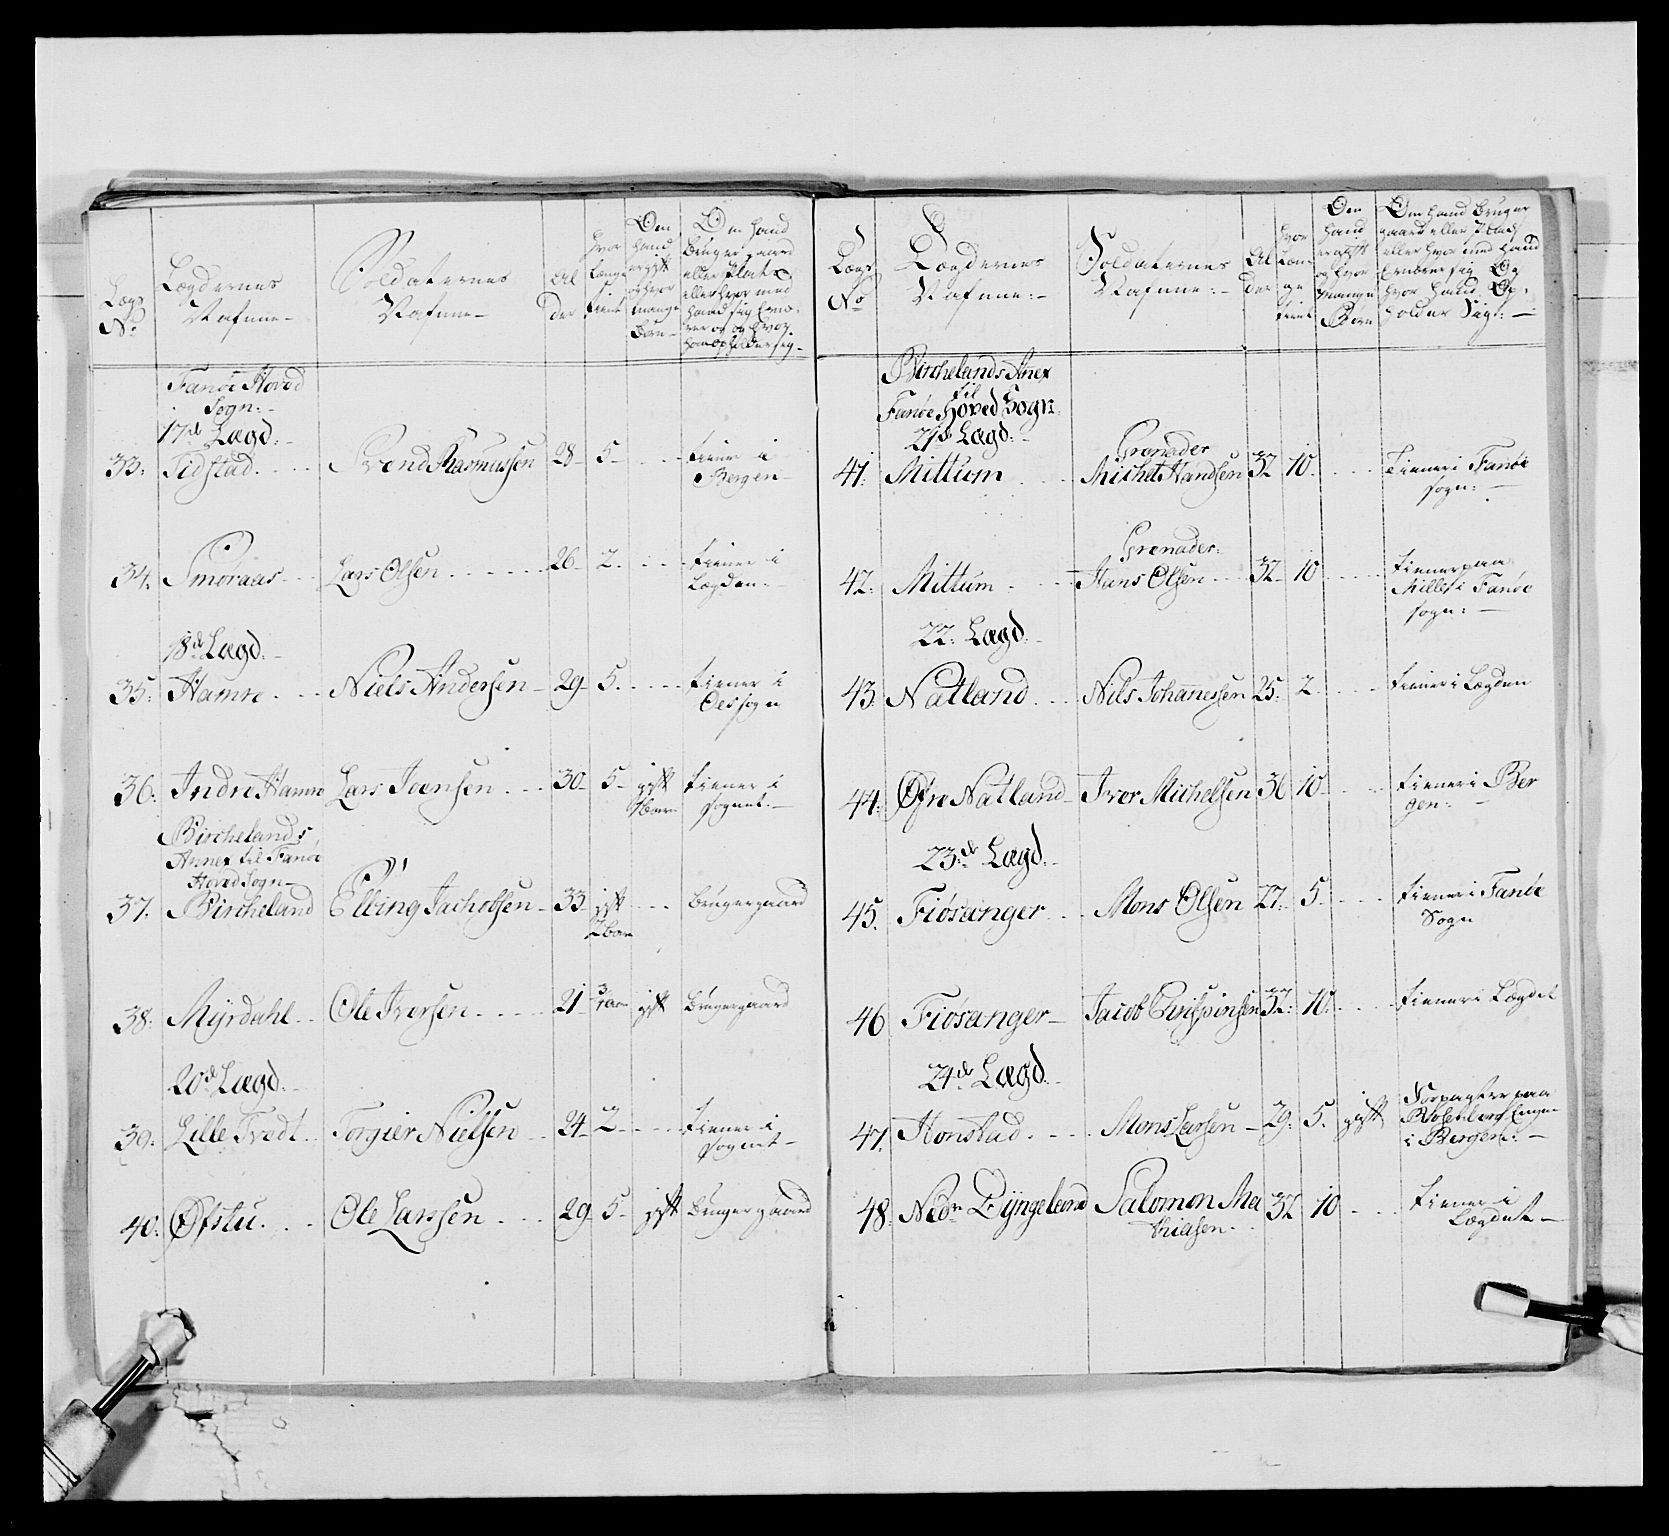 Lægs No
Lægdernes Nafnne
Soldaternes Nafnne
Al
der
hvor
længe
tient
Om
hand
er gift
og hvor
mange
Børn
Om hand
Bruger gaard
eller Plads
eller hvor med
hand sig Ernæ-
rer og hvor
hand opholder sig
Fanøe Hoved
Sogn.
17de Lægd.
33. Tidstad Svend Rasmussen 28 5 tiener i
Bergen
34. Smöraas Lars Olsen 26 2 tiener i
Lægden.
18de Lægd.
35. Hamre Niels Andersen 29 5 tiener i
Oes sogn
36. Indre Hamre Lars Joensen 30 5 gift tiener i
1 barn sognet.
Birchelands
Annex til Fanöe
Hoved Sogn
37. Bircheland Elling Jachobsen 33 gift Bruger gaard
2 bar
38. Myrdahl Ole Iversen 21 3 gift Bruger gaard
20de Lægd.
39. Lille Tvedt Torgier Nielsen 24 2 tiener i
sognet
40. Øfstu Ole Larssen 29 5 gift Bruger gaard
Lægs No
Lægdernes Nafnne
Soldaternes Nafnne
Al
der
hvor
læn-
ge
tient
Om
hand
er gift
og hvor
mange
Børn
Om hand Bruger
gaard eller Plads
eller hvor med hand
Ernærer sig Og
hvor hand Op-
holder Sig.
Birchelands Anex
til
Fanöe Hoved Sogn
21de Lægd.
Grenader
41. Mittum Michel Handsen 32 10 tiener i Fanöe
sogn.
Grenader.
42. Mittum Hans Olsen 32 10 tiener paa
Milles i Fanöe
sogn.
22. Lægd
43. Natland Nils Johannessen 25 2 tiener i Lægden
44. Øfre Natland Iver Michelsen 36 10 tiener i Ber
gen.
23de Lægd.
45. Fiösanger Mons Olsen 27 5 tiener i Fanöe
Sogn
46 Fiösanger Jacob Chrispinsen 32 10 tiener i Lægdet
24de Lægd.
47. Honstad Mons Larsen 29 5 gift Forpagter paa
i Bergen.
48 Nedr Dyngeland Salomon Ma 32 10 tiener i
thiasen Lægdet